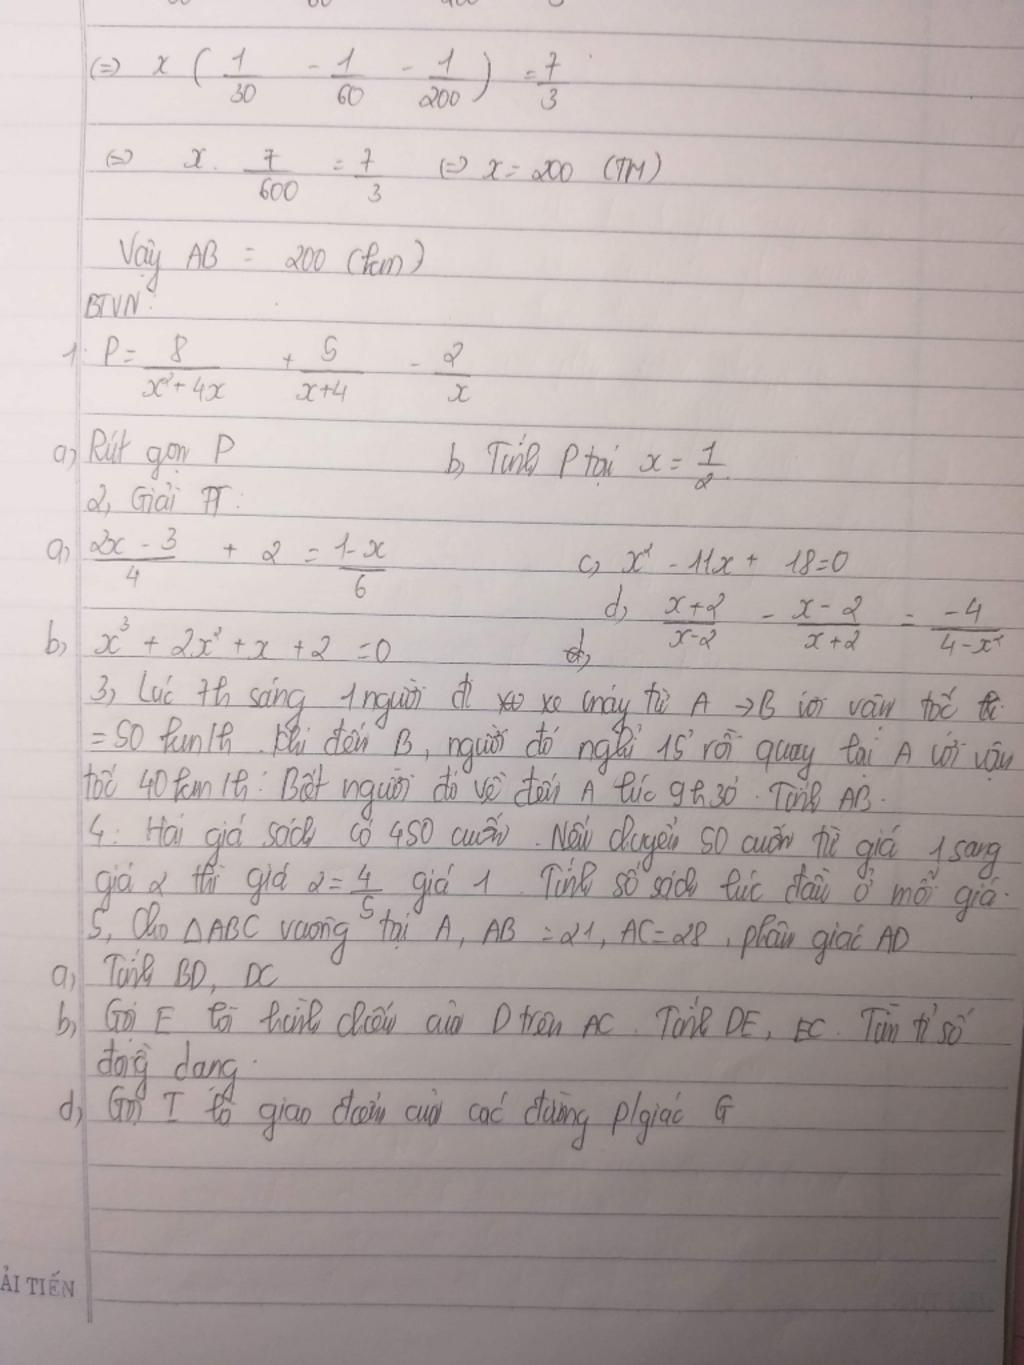 (=) x ( 1/30 - 1/60 - 1/200 ) = 7/3
(=) x. 7/600 = 7/3 (=) x = 200 (TM)
Vậy AB = 200 (km)
BTVN:
1. P = 8/(x²+4x) + 5/(x+4) - 2/x
a, Rút gọn P b, Tính P tại x = 1/2
2, Giải PT:
a, (2x - 3)/4 + 2 = (1-x)/6
c, x² - 11x + 18=0
d, (x+2)/(x-2) - (x-2)/(x+2) = -4/(4-x²)
b, x³ + 2x² + x + 2 =0
3, Lúc 7h sáng 1 người đi xe máy từ A → B với vận tốc
= 50 km/h. Khi đến B, người đó nghỉ 15' rồi quay lại A với vận
tốc 40 km/h. Biết người đó về đến A lúc 9h30'. Tính AB.
4. Hai giá sách có 450 cuốn. Nếu chuyển 50 cuốn từ giá 1 sang
giá 2 thì giá 2 = 4/5 giá 1. Tính số sách lúc đầu ở mỗi giá.
5, Cho △ABC vuông tại A, AB = 21, AC = 28, phân giác AD
a, Tính BD, DC
b, Gọi E là hình chiếu của D trên AC. Tính DE, EC. Tìm tỉ số
đồng dạng.
d, Gọi I là giao điểm của các đường p/giác G
ẢI TIẾN